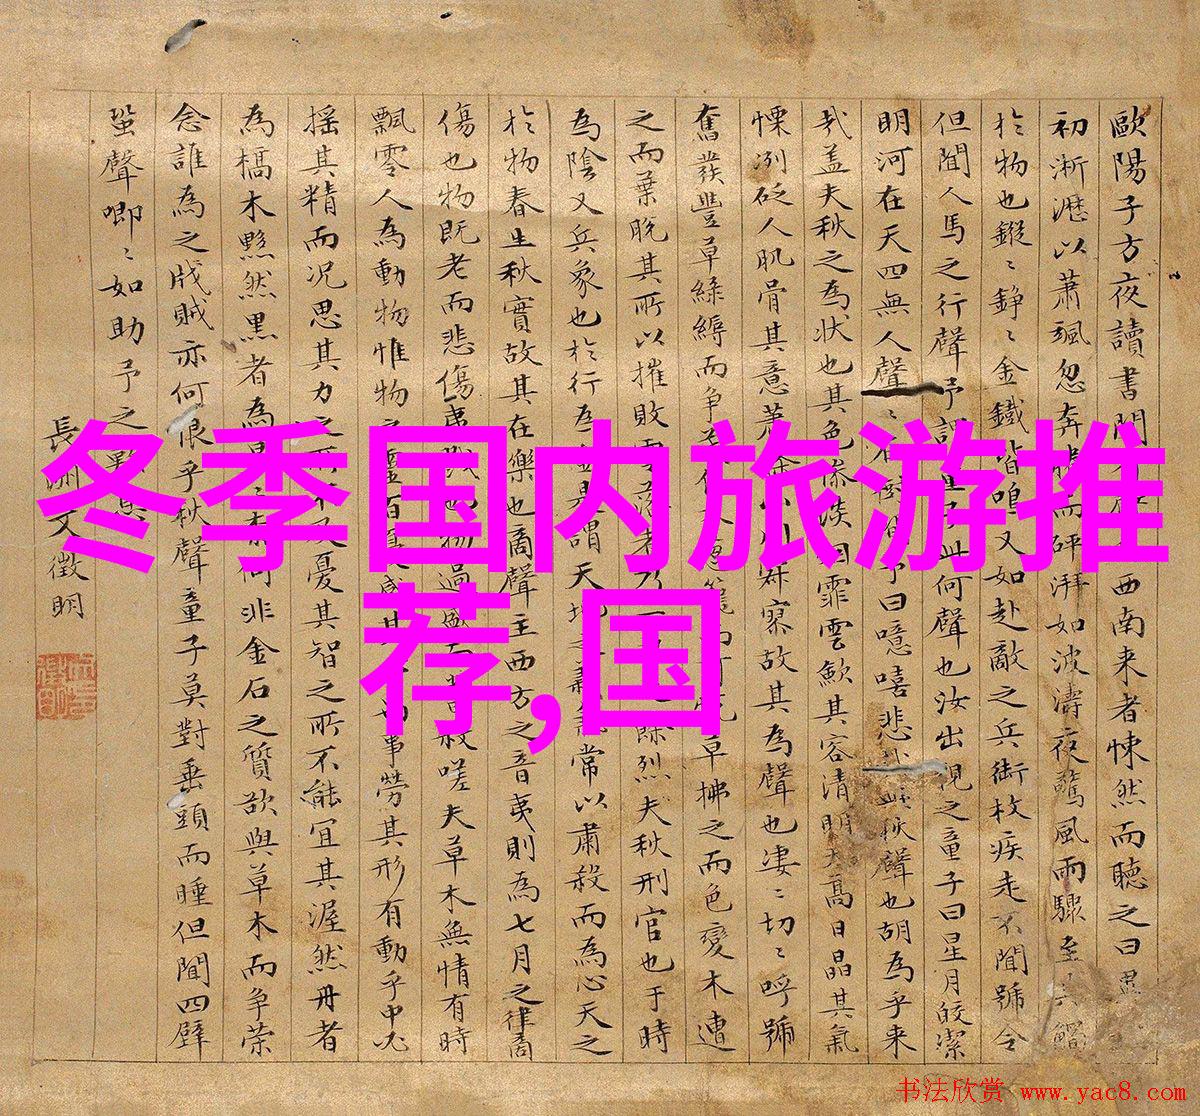 冬季国内旅游推
荐,国
歐陽子方夜讀書聞西南来者悚然而聽之曰
初淅瀝以蕭颯忽奔騰而砰湃如波濤夜驚風雨驟至
於物也鏦〻錚〻金鐵皆鳴又如赴敵之兵銜枚疾走不聞號令
但聞人馬之行聲予此何聲也汝出視之童子曰星月皎潔
明河在天四無人聲〻予曰噫嘻悲秋聲也胡為乎来
哉盖夫秋之為状也其色慘淡烟霏雲歛其容清明天高日晶其氣
慄冽砭人肌骨其意蕭山川寂寥故其為聲也凄〻切〻呼號
奮發豐草綠縟而争草拂之而色變木遭
之而葉脱其所以摧敗落者乃一餘烈夫秋刑官也于時
為陰又兵象也於行為是謂天地之義常以肅殺而為心天之
於物春生秋實故其在樂也商聲主西方之音夷則為七月之律商
傷也物既老而悲傷夷物過盛而殺嗟夫草木無情有時
飄零人為動物惟物之靈百感其事勞其形有動乎中必
摇其精而况思其力之所不及憂其智之所不能宜其渥然丹者
為槁木黟然黑者為何非金石之質欲與草木而争荣
念誰為之戕賊亦何恨乎秋聲童子莫對垂頭而睡但聞四壁
蛩聲唧〻如助予之歎息
長洲文徵明
书法欣赏 www.yac8.com